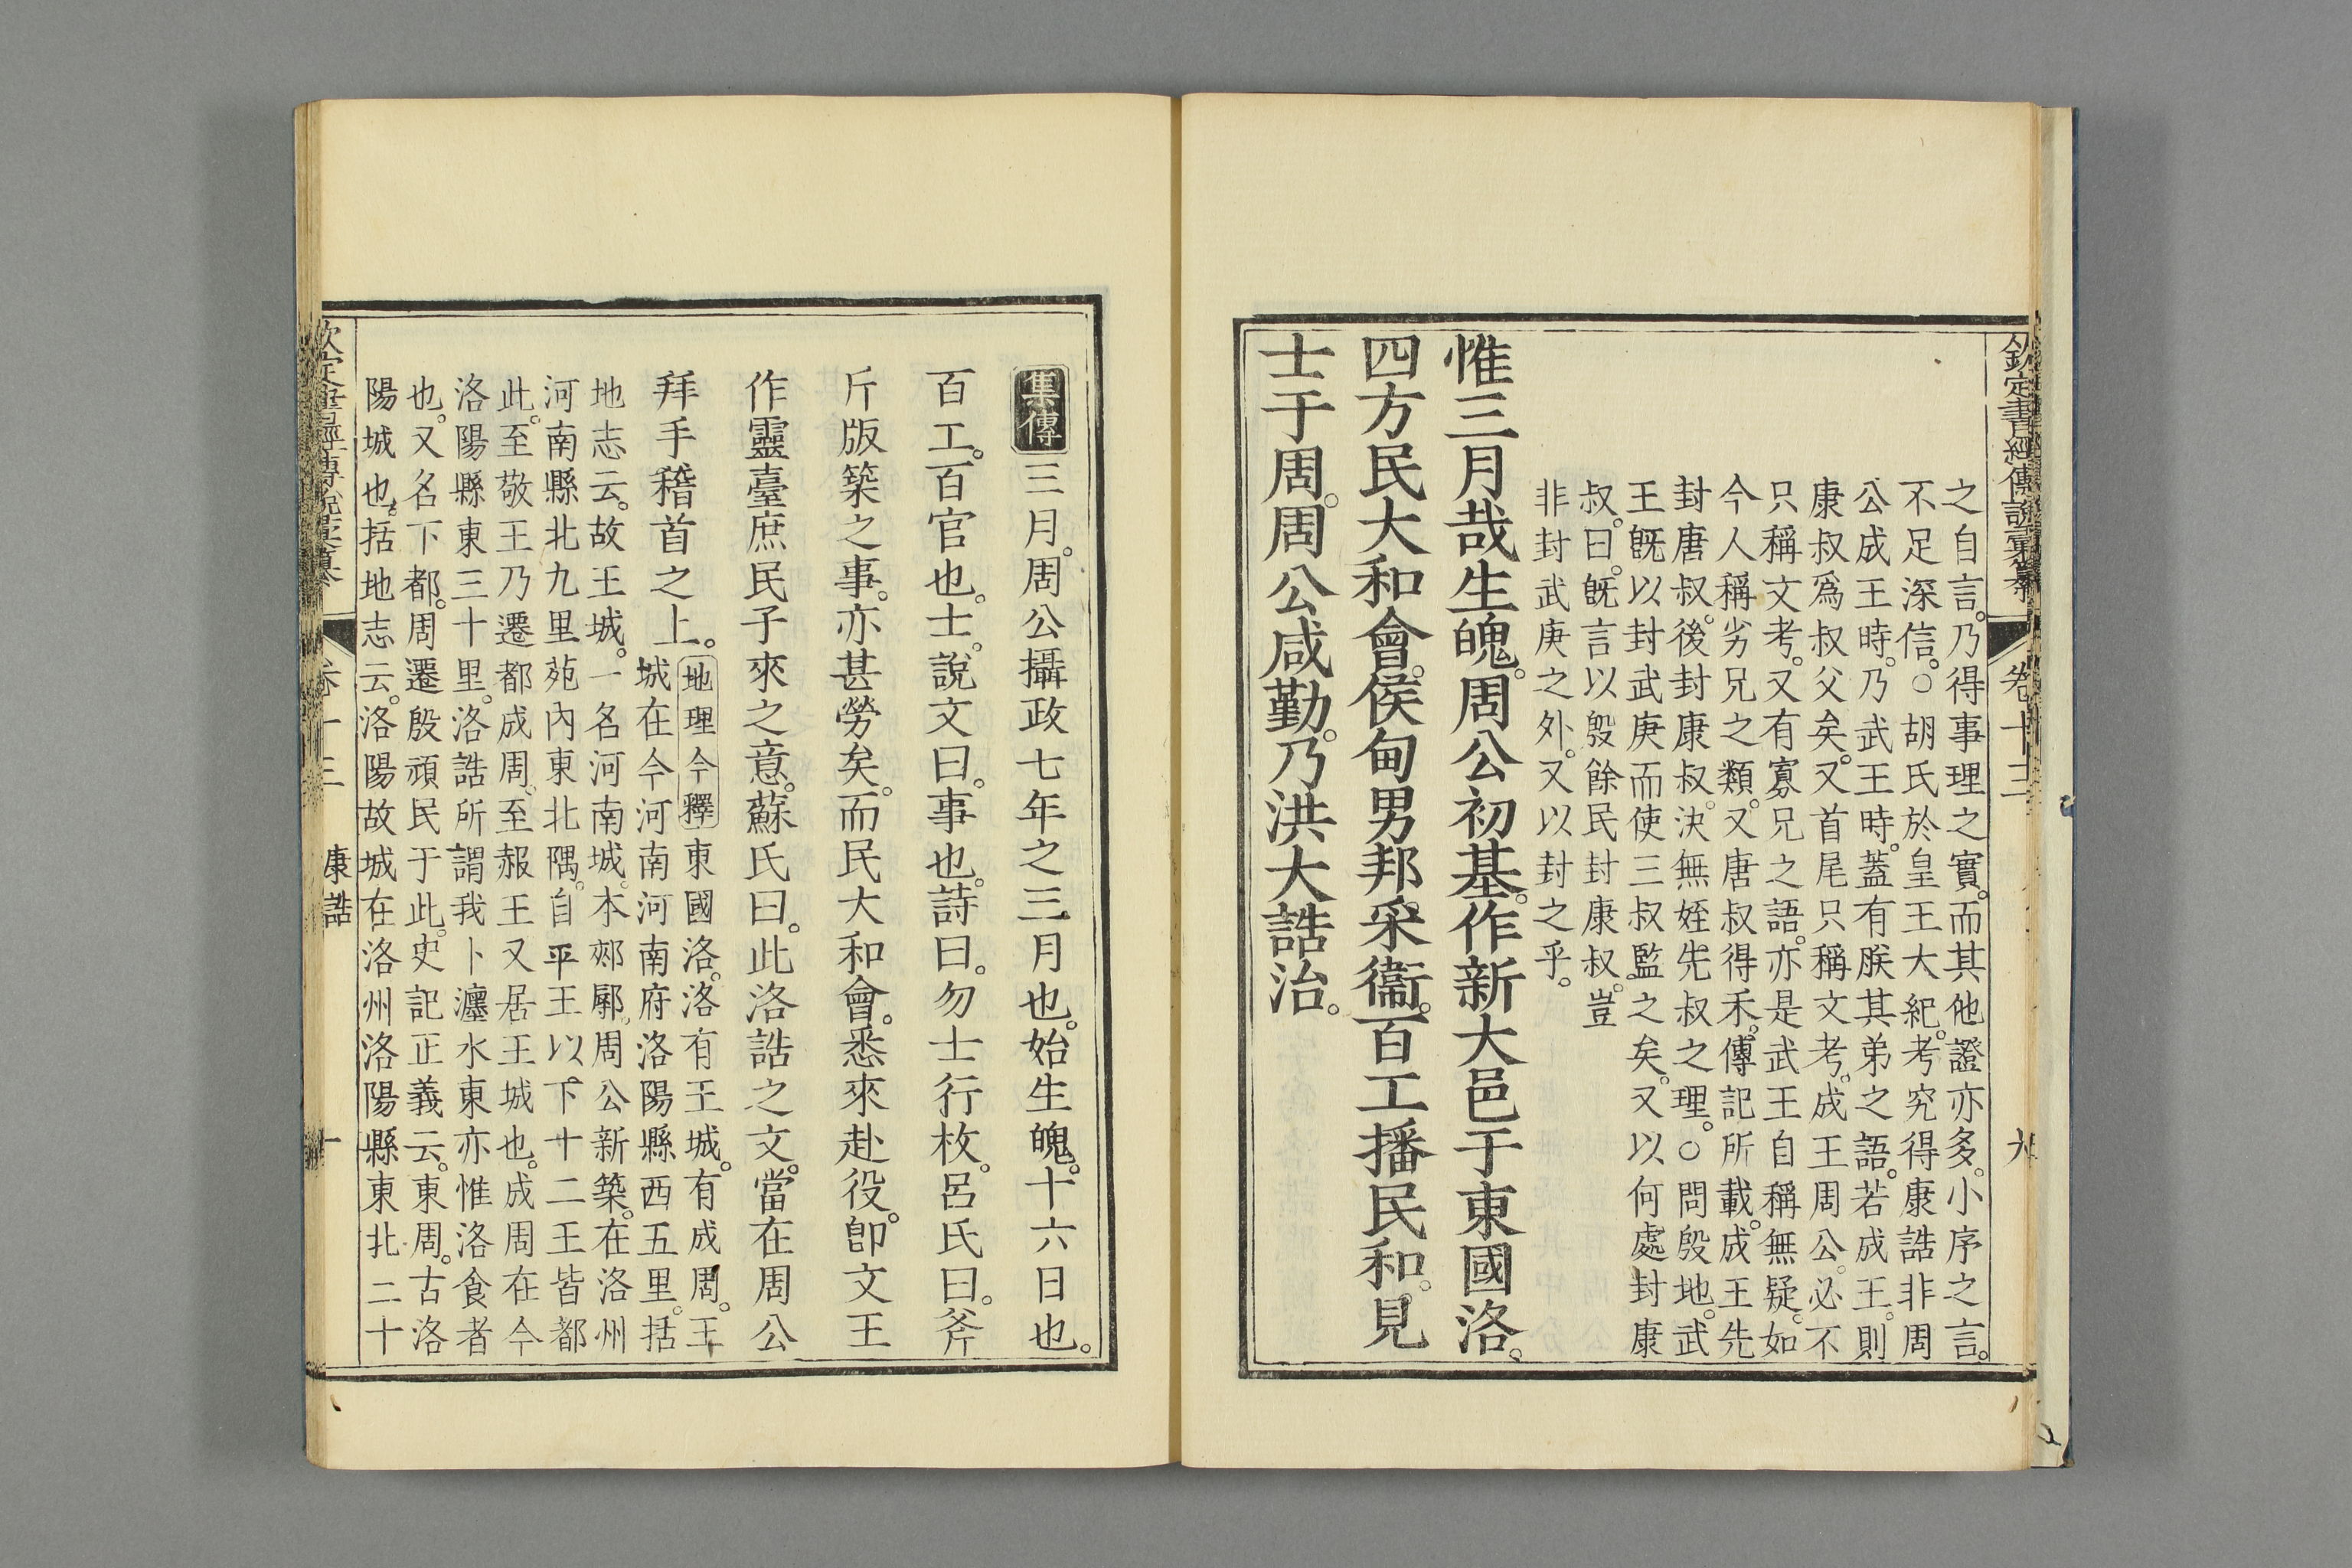 欽定書經傳說彙纂
卷十三
九
之自言。乃得事理之實。而其他證亦多。小序之言。
不足深信。○胡氏於皇王大紀。考究得康誥非周
公成王時。乃武王時。蓋有朕其弟之語。若成王。則
康叔爲叔父矣。又首尾只稱文考。成王周公。必不
只稱文考。又有寡兄之語。亦是武王自稱無疑。如
今人稱劣兄之類。又唐叔得禾。傳記所載。成王先
封唐叔。後封康叔。決無姪先叔之理。○問殷地。武
王旣以封武庚而使三叔監之矣。又以何處封康
叔。曰。旣言以殷餘民封康叔。豈
非封武庚之外。又以封之乎。
惟三月哉生魄。周公初基。作新大邑于東國洛。
四方民大和會。侯甸男邦采衞。百工播民和。見
士于周。周公咸勤。乃洪大誥治。
集傳三月。周公攝政七年之三月也。始生魄。十六日也。
百工。百官也。士。說文曰。事也。詩曰。勿士行枚。呂氏曰。斧
斤版築之事。亦甚勞矣。而民大和會。悉來赴役。卽文王
作靈臺庶民子來之意。蘇氏曰。此洛誥之文。當在周公
拜手稽首之上。
地理今釋東國洛。洛有王城。有成周。王
城在今河南河南府洛陽縣西五里。括
地志云。故王城。一名河南城。本郟鄏。周公新築。在洛州
河南縣北九里苑內東北隅。自平王以下十二王皆都
此。至敬王乃遷都成周。至赧王又居王城也。成周在今
洛陽縣東三十里。洛誥所謂我卜瀍水東亦惟洛食者
也。又名下都。周遷殷頑民于此。史記正義云。東周。古洛
陽城也。括地志云。洛陽故城在洛州洛陽縣東北二十
欽定書經傳說彙纂
卷十三
康誥
十